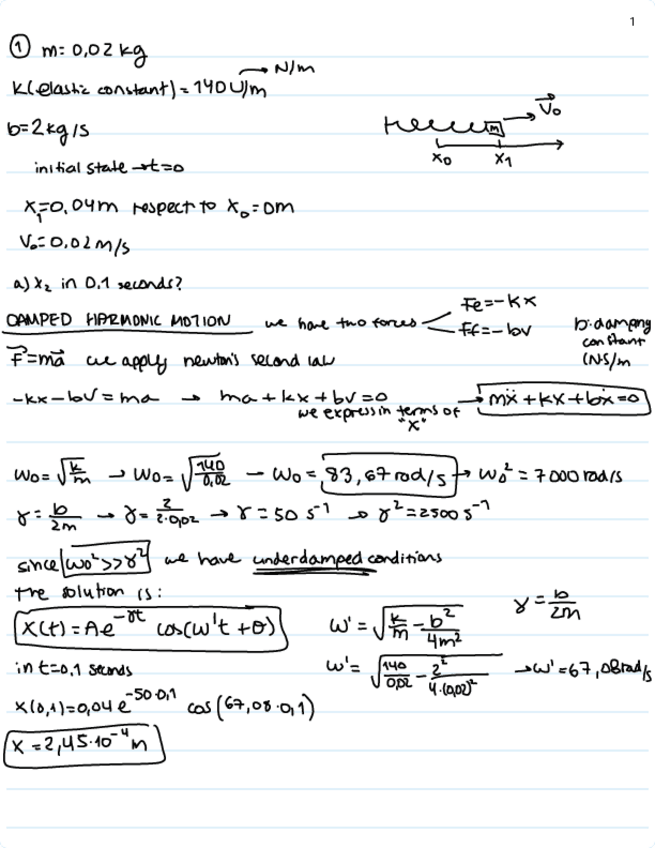 1
① m: 0,02 kg
→ N/m
K(elastic constant) = 140 U/m
V₀
m
b=2kg/s
x₀ x₁
initial state → t=0
x₁=0,04m respect to x₀=0m
V₀=0,02m/s
a) x₂ in 0,1 seconds?
DAMPED HARMONIC MOTION we have two forces Fe=-kx
Ff=-bv
b: damping constant (NS/m
F=ma we apply newton's second law
-kx-bv=ma → ma+kx+bv=0 → mẍ+kx+bẋ=0
we express in terms of "x"
W₀=√(k/m) → W₀=√(140/0,02) – W₀=83,67 rad/s → W₀²=7000 rad/s
γ=b/2m → γ=2/2·0,02 → γ=50 s⁻¹ → γ²=2500 s⁻¹
since W₀²>>γ² we have underdamped conditions
the solution is:
γ=b/2m
x(t)=Ae^-γt cos(w't+θ) w'=√(k/m - b²/4m²)
in t=0,1 seconds w'=√(140/0,02 - 2²/4·(0,02)²) → w'=67,08rad/s
x(0,1)=0,04 e^-50·0,1 cos(67,08·0,1)
x=2,45·10⁻⁴m